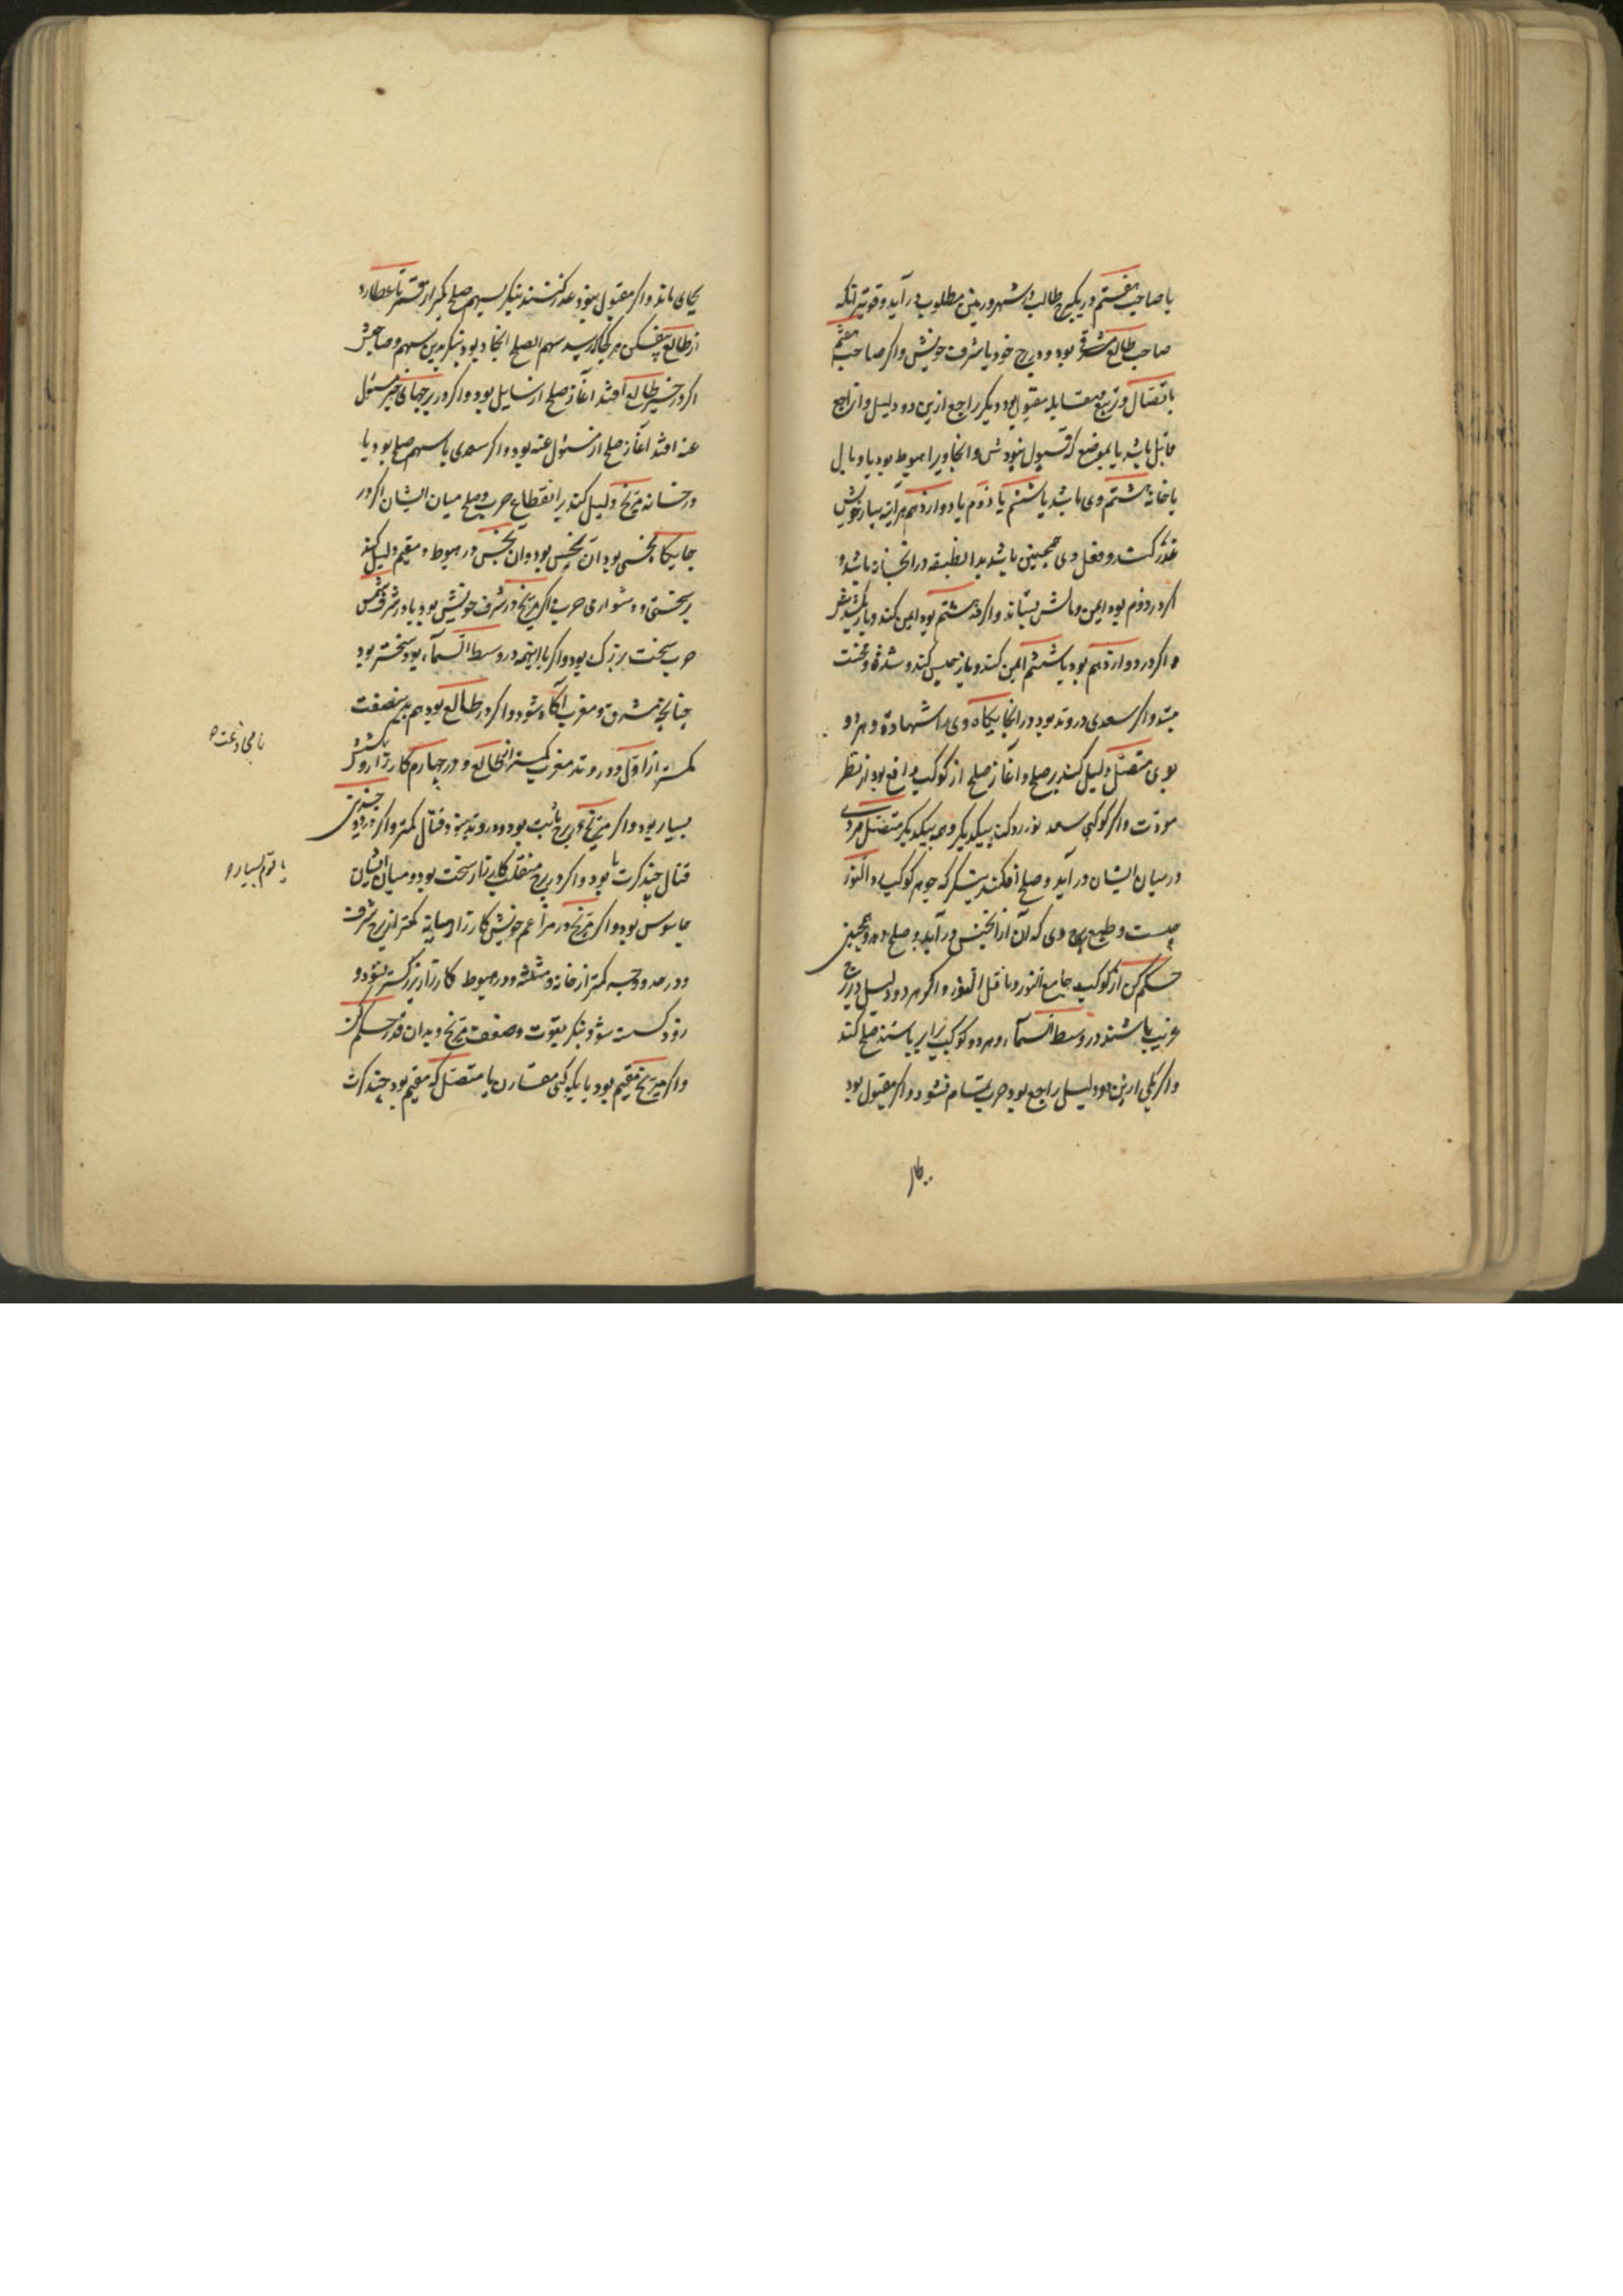 با صاحب هفتم در یکبرج طالب در شهر و زمین مطلوب درآید و قویتر آنکه
صاحب طالع مشرقی بود و در برج خود یا شرف خویش و اکر صاحب هفتم
باتصال و تربیع و مقابله مقبول بود و دیکر راجع ازین دو دلیل و آن راجع
قابل باشد یا بموضع که قبول نبودش و انجا ویرا هبوط بود یا وبال
یا خانه هشتم وی باشد یا ششم یا دوم یا دوازدهم هرآینه بیار خویش
غدر کند و فعل وی همچنین باشد بدان طبقه در انخانه باشد و
اکر در دوم بود ایمن و مالش بستاند و اکر در هشتم بود ایمن کند و باز بکشدش
و اکر در دوازدهم بود یا ششم ایمن کند و باز حبس کند و شدة و محنت
بیند و اکر سعدی در وتد بود در انجایکاه وی را شهادة و هر دو
بوی متصل دلیل کند بر صلح و آغاز صلح از کوکب دافع بود از نظر
مودت و اکر کوکبی سعد نور رد کند بیکدیکر و همه بیکدیکر متصل مردی
در میان ایشان درآید و صلح افکند بنکر که جوهر کوکب راد النور
چیست و طبع برج وی که آن از انجنس درآید و صلح دهد و همچنین
حکم کن از کوکب جامع النور و ناقل النور و اکر هر دو دلیل در برج
غریب باشند در وسط السماء و هر دو کوکب برابر باشند صلح کند
و اکر یکی ازین دو دلیل راجع بود حرب تمام نشود و اکر مقبول بود
بجای ماند و اکر مقبول نبود غدر کنند بنکر بسهم صلح بکیر از قمر تا عطارد
از طالع بیفکن هر کجا که رسد سهم الصلح انجا بود بنکر بدین سهم و صاحبش
اکر در حیز طالع افتد آغاز صلح از سایل بود و اکر در برجهای حیز مسئول
عنه افتد آغاز صلح از مسئول عنه بود و اکر سعدی با سهم صلح بود یا
در خانه مریخ دلیل کند بر انقطاع حرب و صلح میان ایشان اکر در
جایکاه نحسی بود آن نحس بود و آن نحس در هبوط و مقیم دلیل کند
بر سختی و دشواری حرب و اکر مریخ در شرف خویش بود یا در شرف شمس
حرب سخت بزرک بود و اکر با اینهمه در وسط السماء بود سختتر بود
چنانکه مشرق و مغرب آکاه شود و اکر در طالع بود هم بدین صفت
کمتر از اول و در وتد مغرب کمتر از طالع و در چهارم کارزار و کشش
بسیار بود و اکر مریخ در برج ثابت بود و در وتد نبود قتال کمتر و اکر در ذو جسدین
قتال چند کرت بود و اکر در برج منقلب کارزار سخت بود و میان ایشان
جاسوس بود و اکر مریخ در مراغم خویش کارزار میانه کمتر از برج شرف
و در حد و وجه کمتر از خانه و مثلثه و در هبوط کارزار بزرکتر نبود و
زود کسسته شود بنکر بقوت و ضعف مریخ و بدان قدر حکم کن
و اکر مریخ مقیم بود با یکوکبی مقارن یا متصل که مقیم بود چند کرت